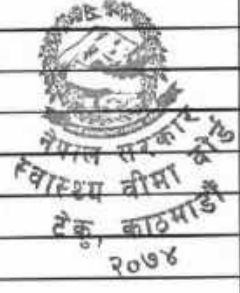 नेपाल सरकार
स्वास्थ्य बीमा बोर्ड
टेकु, काठमाडौं
२०७४